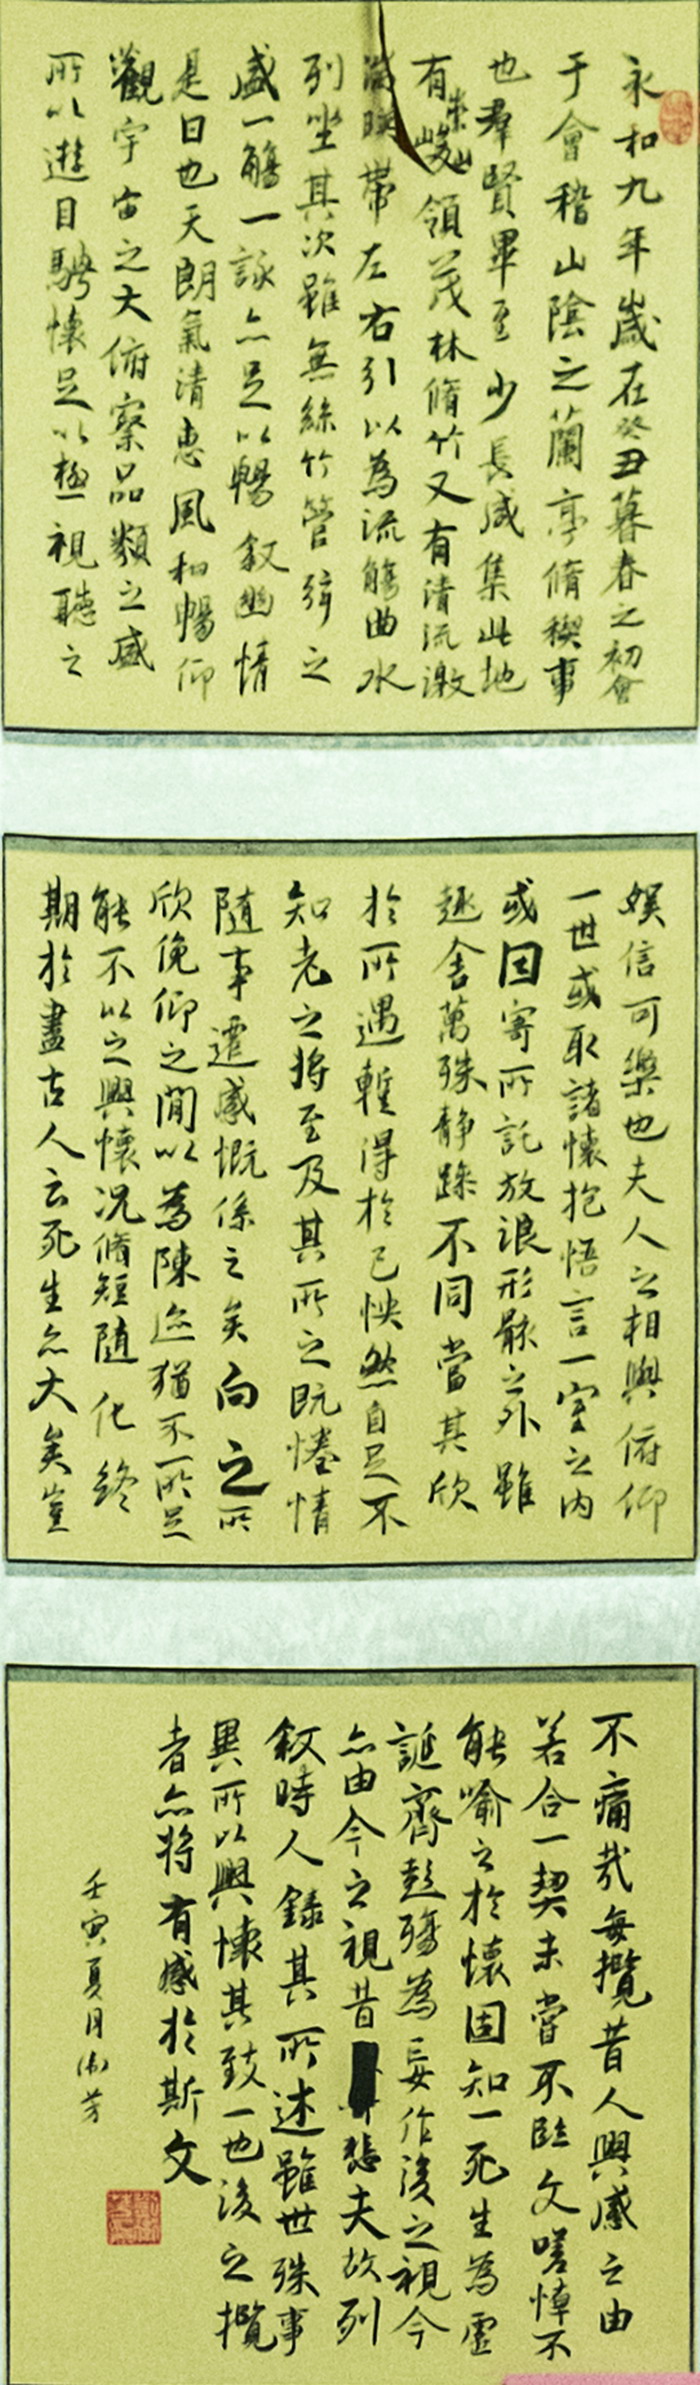 永和九年歲在癸丑暮春之初會
于會稽山陰之蘭亭脩稧事
也羣賢畢至少長咸集此地
有崇山峻領茂林脩竹又有清流激
湍暎帶左右引以為流觴曲水
列坐其次雖無絲竹管弦之
盛一觴一詠亦足以暢敘幽情
是日也天朗氣清惠風和暢仰
觀宇宙之大俯察品類之盛
所以遊目騁懷足以極視聽之
娛信可樂也夫人之相與俯仰
一世或取諸懷抱悟言一室之內
或因寄所託放浪形骸之外雖
趣舍萬殊靜躁不同當其欣
於所遇暫得於己怏然自足不
知老之將至及其所之既惓情
隨事遷感慨係之矣向之所
欣俛仰之閒以為陳迹猶不所足
能不以之興懷況脩短隨化終
期於盡古人云死生亦大矣豈
不痛哉每攬昔人興感之由
若合一契未嘗不臨文嗟悼不
能喻之於懷固知一死生為虛
誕齊彭殤為妄作後之視今
亦由今之視昔悲夫故列
敘時人錄其所述雖世殊事
異所以興懷其致一也後之攬
者亦將有感於斯文
壬寅夏月 芳